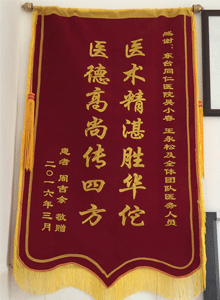 感谢：东台同仁医院吴小春 王永松及全体团队医务人员
医术精湛胜华佗
医德高尚传四方
患者 周吉余 敬赠
二〇一六年三月